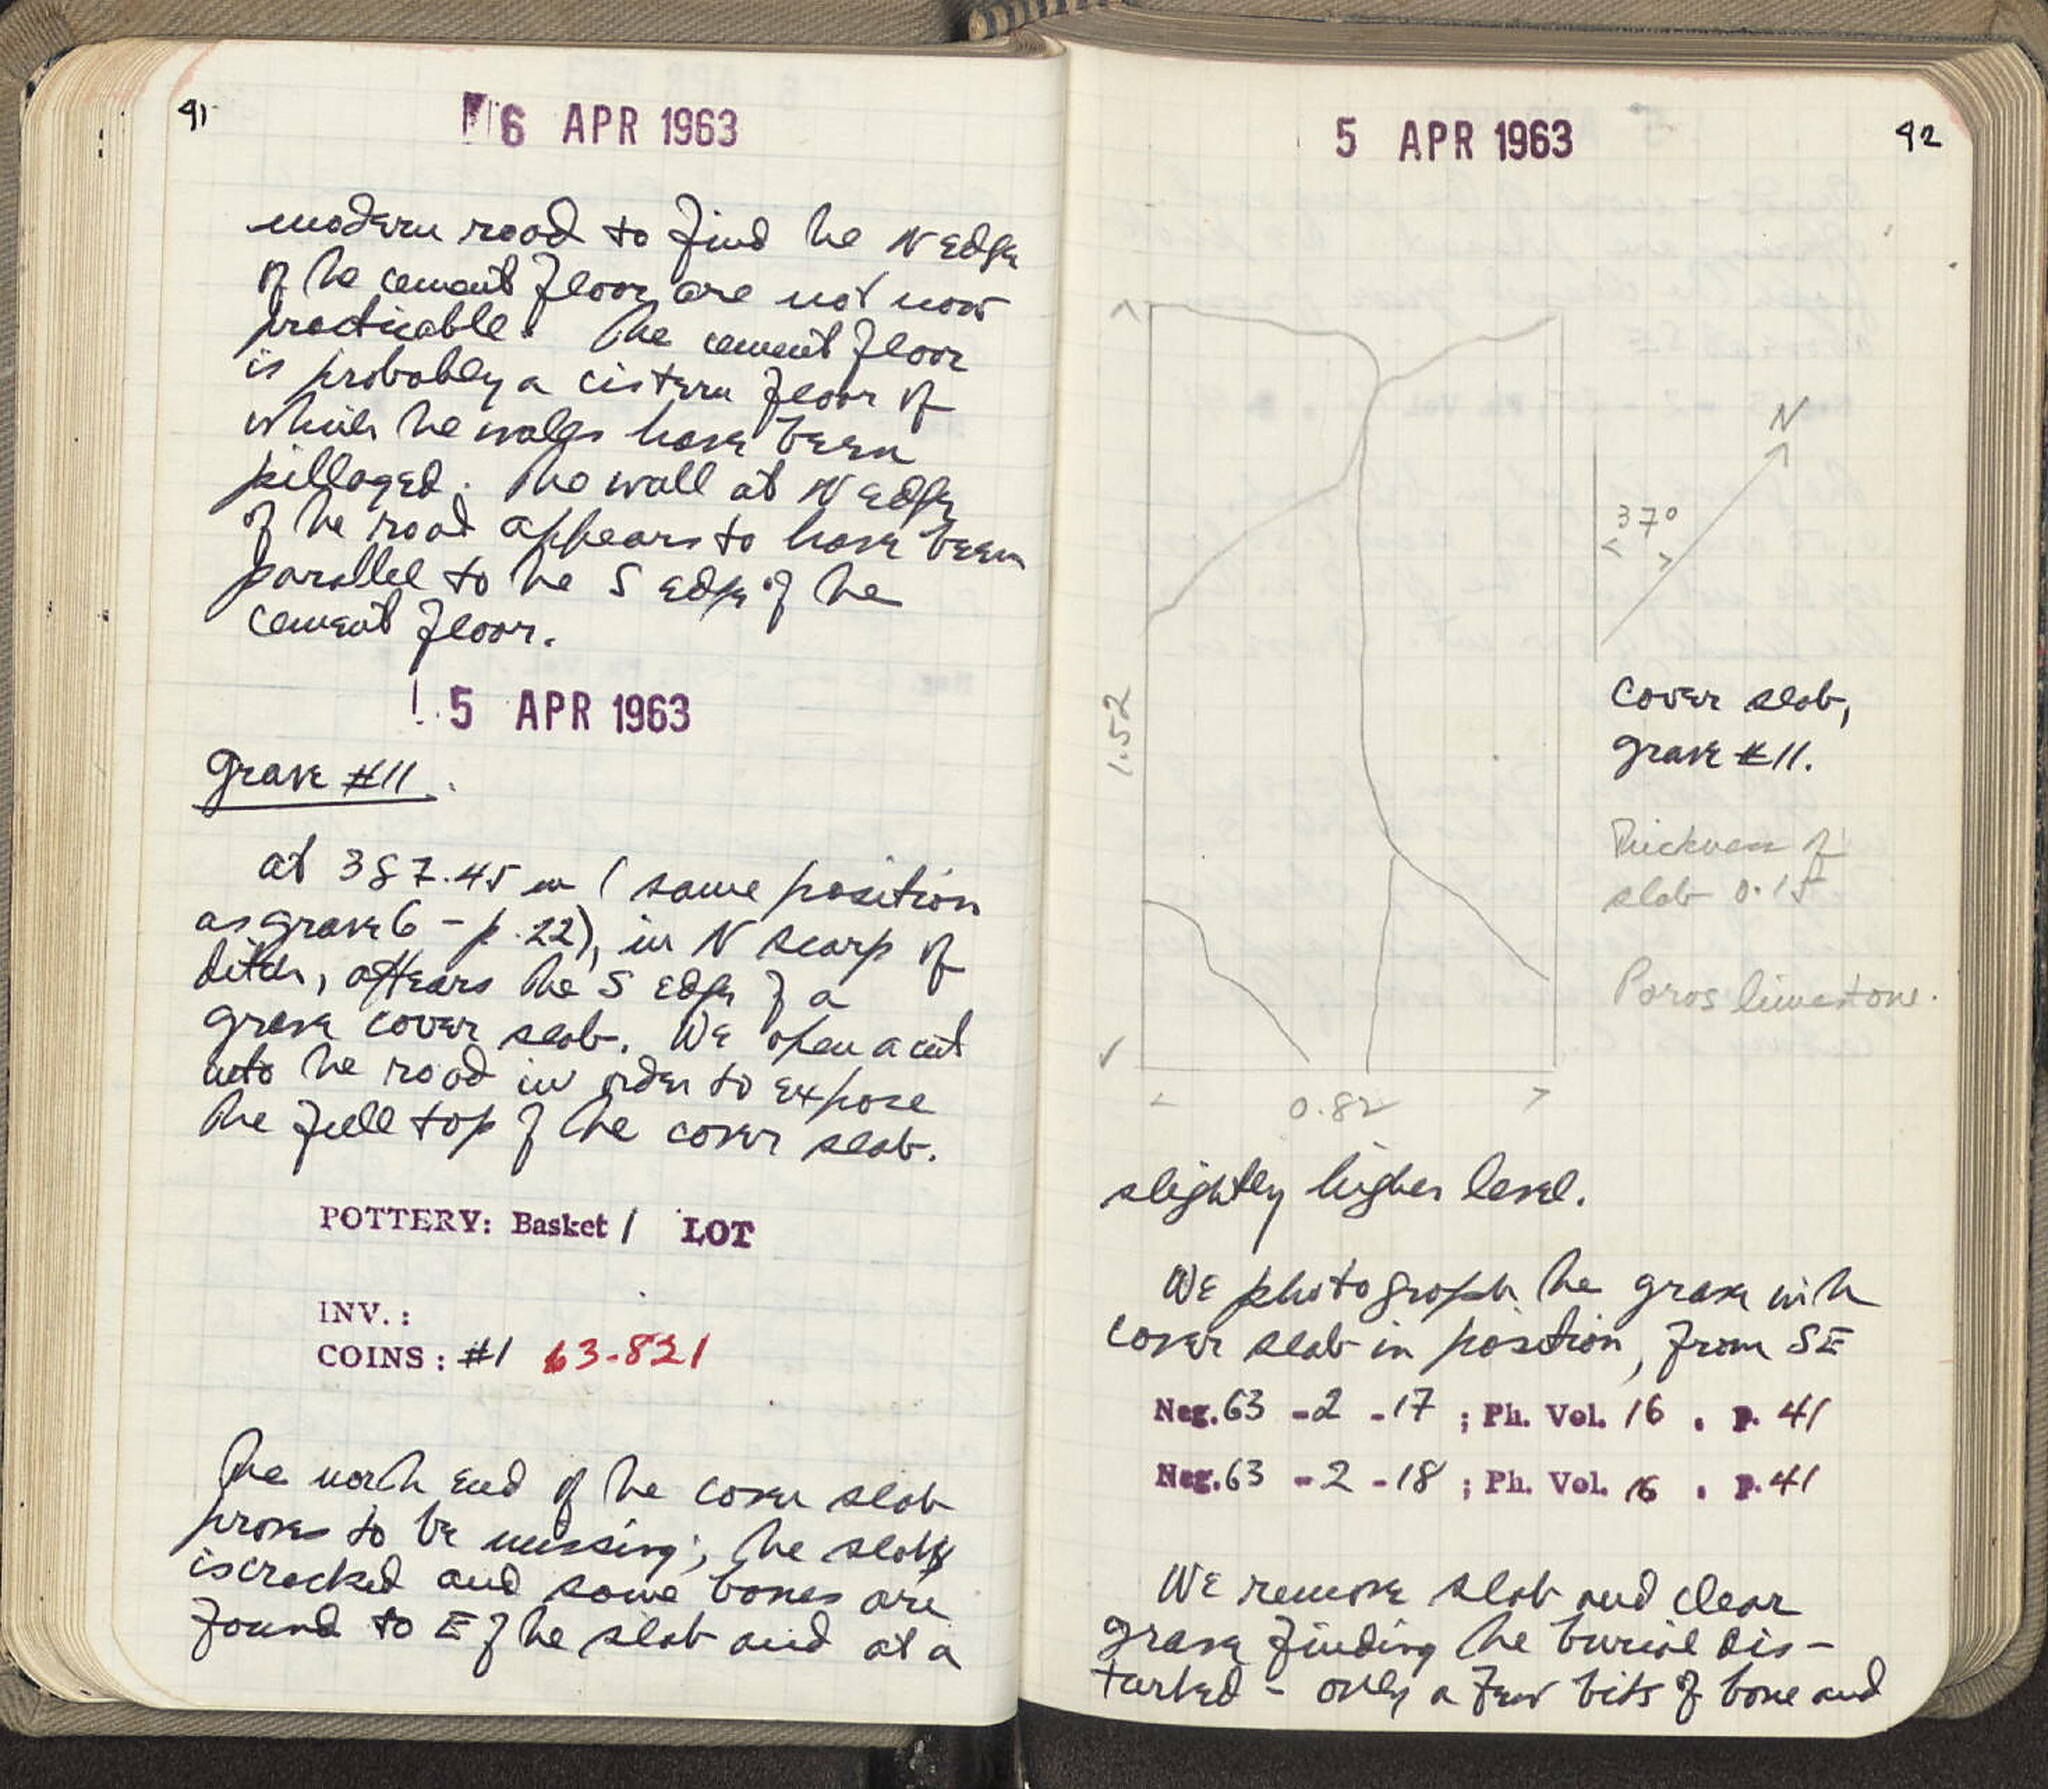 41
6 APR 1963
modern road to find the N edge
of the cement floor are not now
practicable. The cement floor
is probably a cistern floor of
which the walls have been
pillaged. The wall at N edge
of the road appears to have been
parallel to the S edge of the
cement floor.
5 APR 1963
Grave #11.
at 387.45 m (same position
as grave 6 - p. 22), in N scarp of
ditch, appears the S edge of a
grave cover slab. We open a cut
into the road in order to expose
the full top of the cover slab.
POTTERY: Basket 1 LOT
INV.:
COINS: #1 63-821
The north end of the cover slab
proves to be missing; the slab
is cracked and some bones are
found to E of the slab and at a
5 APR 1963
42
N
37°
1.52
cover slab,
grave #11.
Thickness of
slab 0.15
Poros limestone.
0.82
slightly higher level.
We photograph the grave with
cover slab in position, from SE
Neg. 63 - 2 - 17 ; Ph. Vol. 16 . p. 41
Neg. 63 - 2 - 18 ; Ph. Vol. 16 . p. 41
We remove slab and clear
grave finding the burial dis-
turbed - only a few bits of bone and